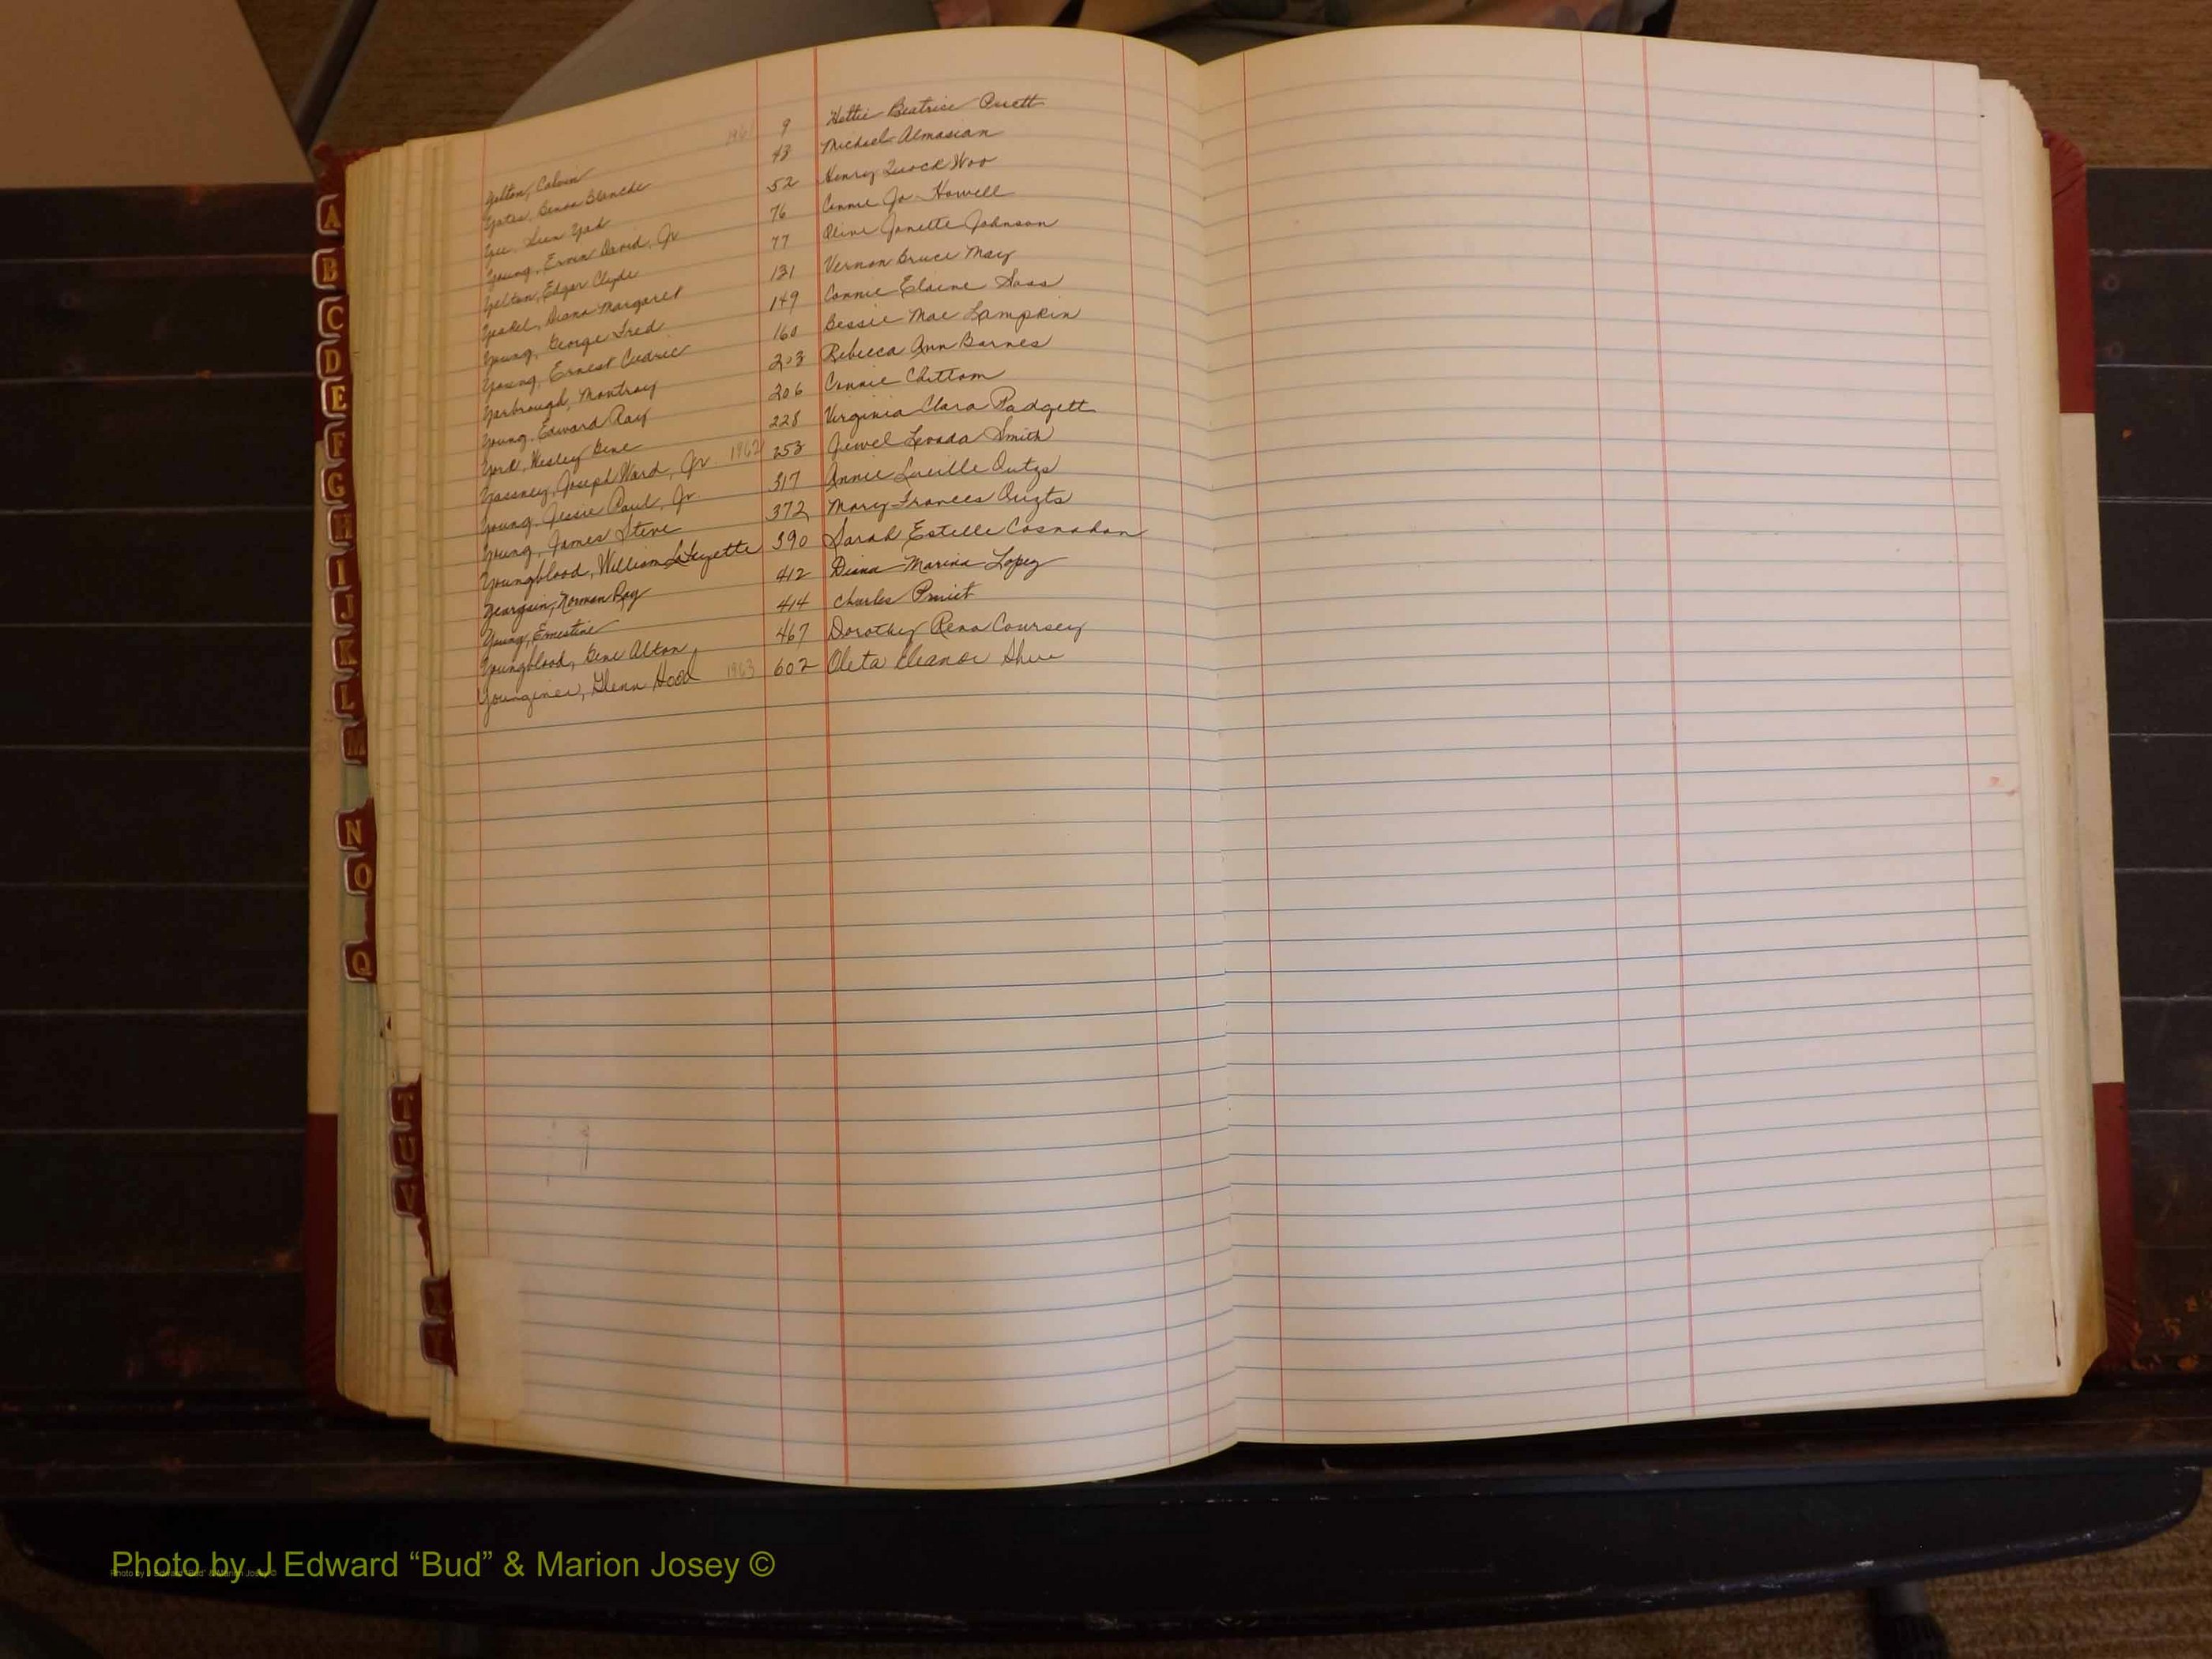 Yelton, Calvin 1961 9 Hettie Beatrice Ouett
Yates, Benna Blanche 43 Michael Almasian
Yee, Suen Yook 52 Henry Quock Woo
Young, Ervin David, Jr 76 Connie Jo Howell
Yelton, Edgar Clyde 77 Oline Janette Johnson
Yeadel, Diana Margaret 131 Vernon Bruce May
Young, George Fred 149 Connie Elaine Sass
Young, Ernest Cedric 160 Bessie Mae Lampkin
Yarbrough, Montray 203 Rebecca Ann Barnes
Young, Edward Ray 206 Connie Chittam
York, Wesley Gene 228 Virginia Clara Padgett
Yassney, Joseph Ward, Jr. 1962 253 Jewel Levada Smith
Young, Jessie Paul, Jr. 317 Annie Lucille Outzs
Young, James Steve 372 Mary Frances Ouzts
Youngblood, William LaFayette 390 Sarah Estelle Cosnahan
Yeargin, Norman Ray 412 Diana Marina Lopez
Young, Ernestine 414 Charles
Youngblood, Gene Alton 467 Dorothy Rena Coursey
Younginer, Glenn Hood 1963 602 Oleta Eleanor
A
B
C
D
E
F
G
H
I
J
K
L
M
N
O
Q
T
U
V
Y
Photo by J Edward “Bud” & Marion Josey ©
Photo by J Edward “Bud” & Marion Josey ©